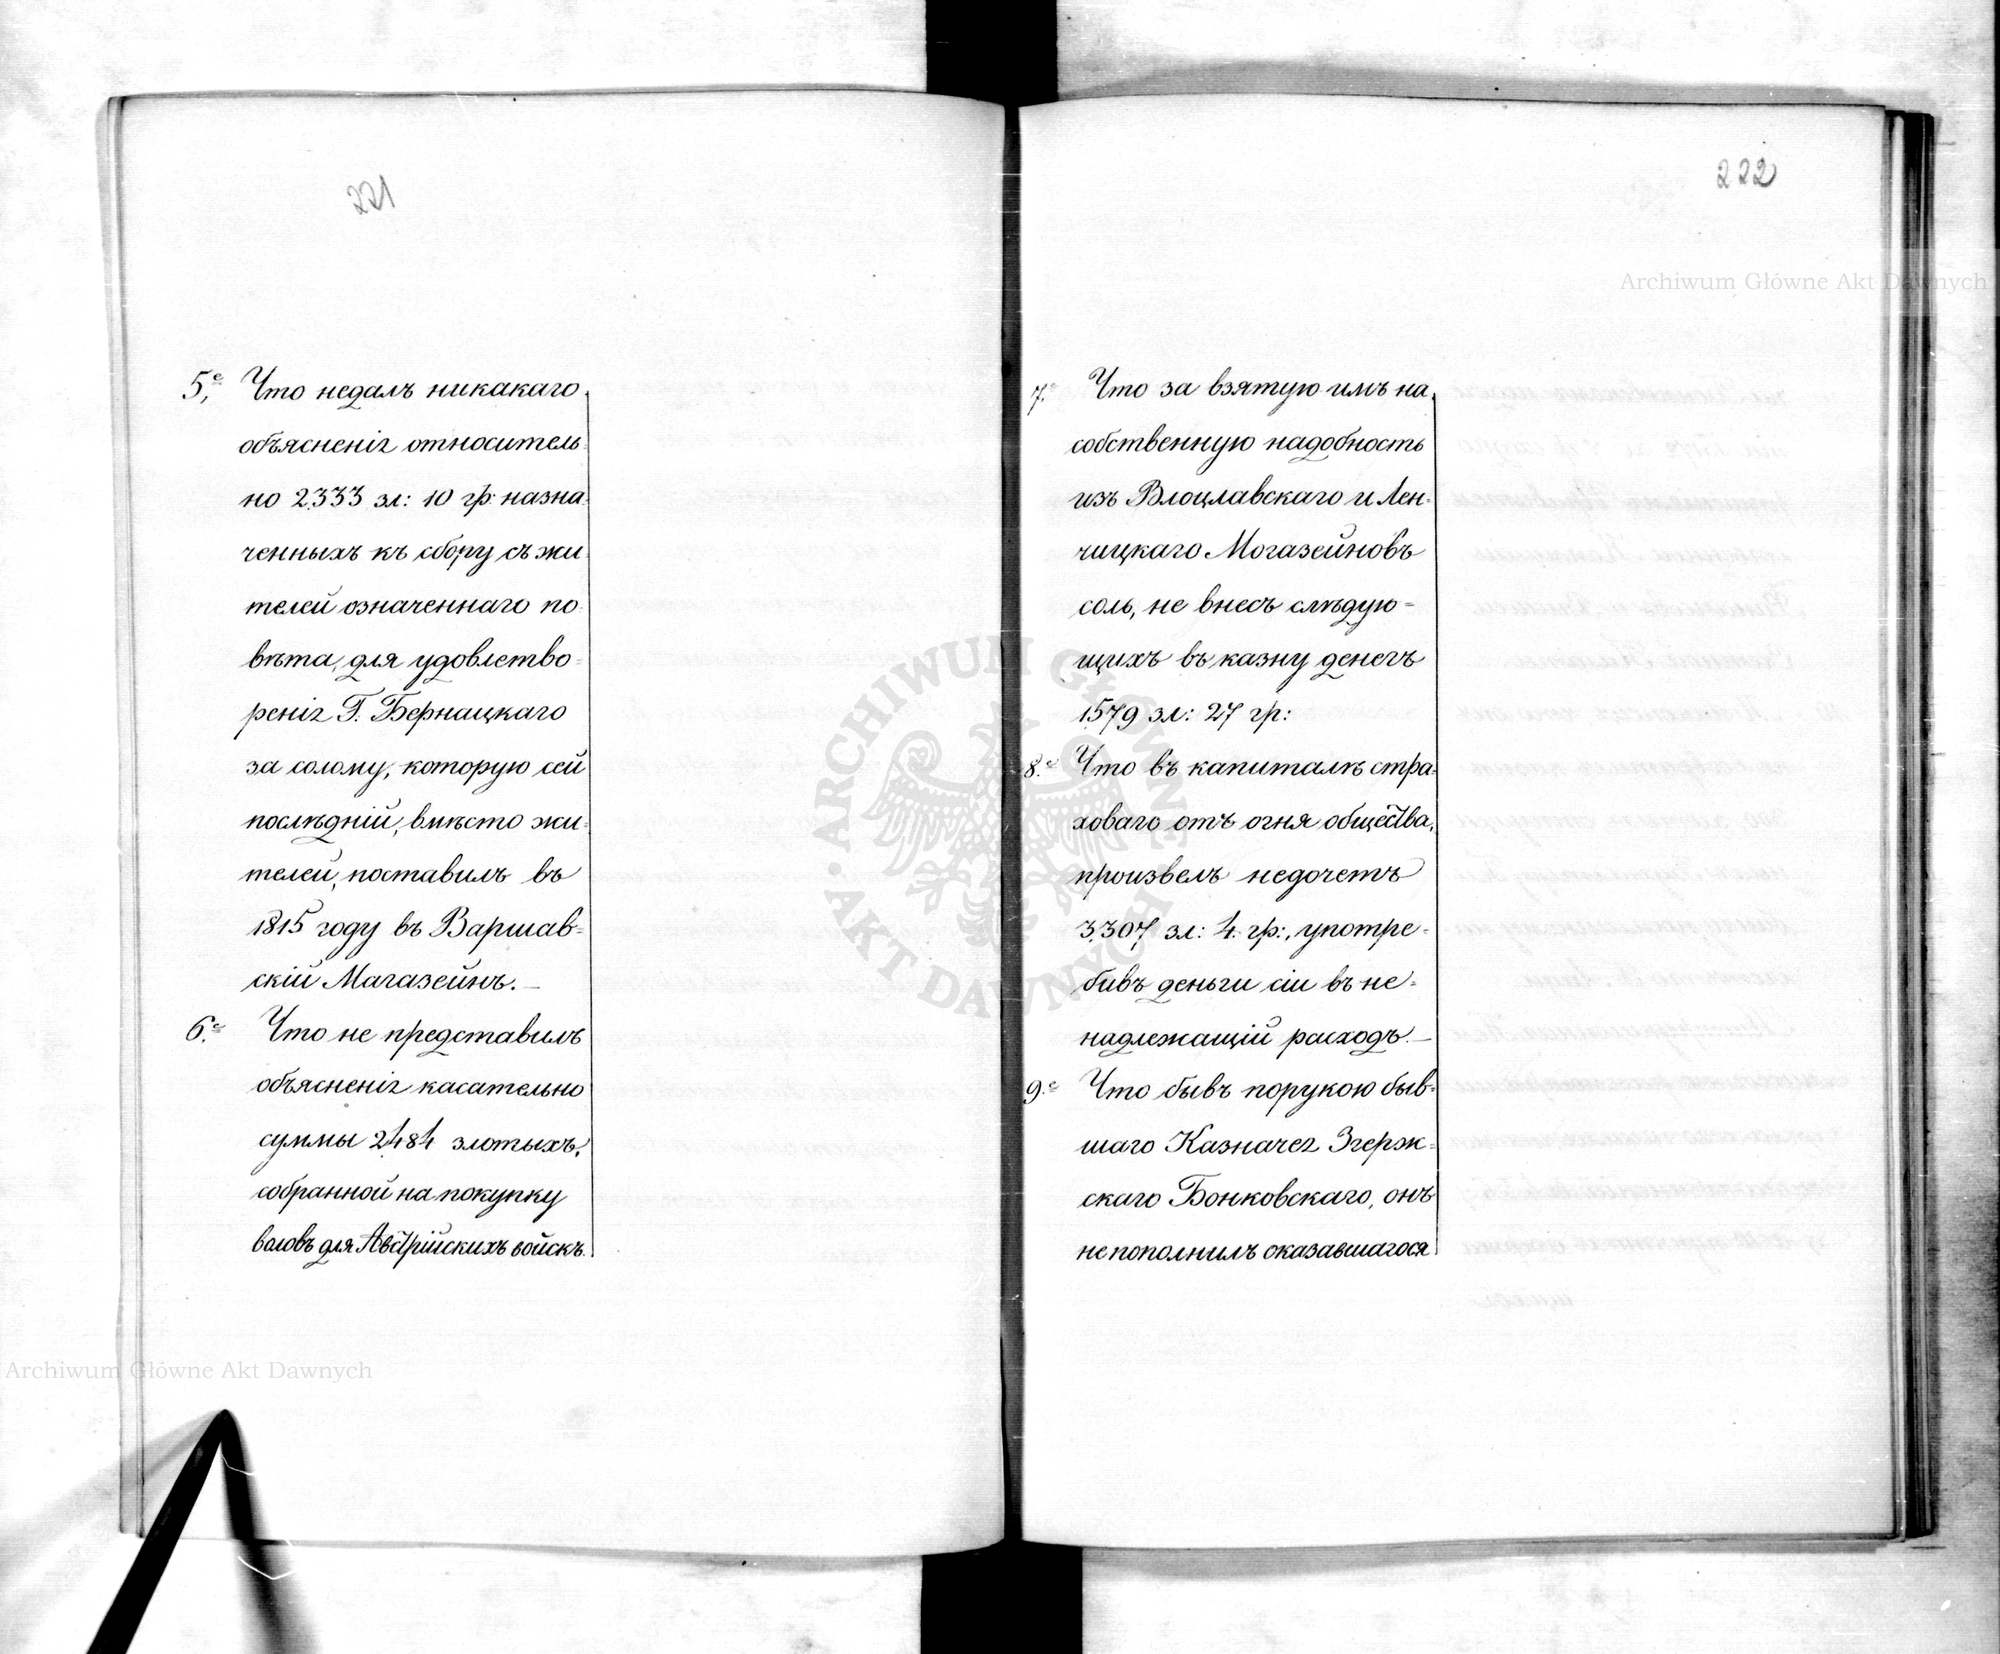 221
5,е Что недалъ никакаго
объясненія относитель-
но 2333 зл: 10 гр: назна-
ченныхъ къ сбору съ жи-
телей означеннаго по-
вѣта, для удовлетво-
ренія Г. Бернацкаго
за солому, которую сей
послѣдній, вмѣсто жи-
телей, поставилъ въ
1815 году въ Варшав-
скій Магазейнъ. —
6.е Что не представилъ
объясненія касательно
суммы 2484 злотыхъ,
собранной на покупку
воловъ для Австрійскихъ войскъ.
222
7.е Что за взятую имъ на
собственную надобность
изъ Влоцлавскаго и Лен-
чицкаго Могазейновъ
соль, не внесъ слѣдую-
щихъ въ казну денегъ
1579 зл: 27 гр:
8.е Что въ капиталѣ стра-
ховаго отъ огня общества,
произвелъ недочетъ
3,307 зл: 4. гр:, употре-
бивъ деньги сіи въ не-
надлежащій расходъ. —
9.е Что бывъ порукою быв-
шаго Казначея Згерж-
скаго Бонковскаго, онъ
не пополнилъ оказавшагося
Archiwum Główne Akt Dawnych
ARCHIWUM GŁÓWNE AKT DAWNYCH
Archiwum Główne Akt Dawnych